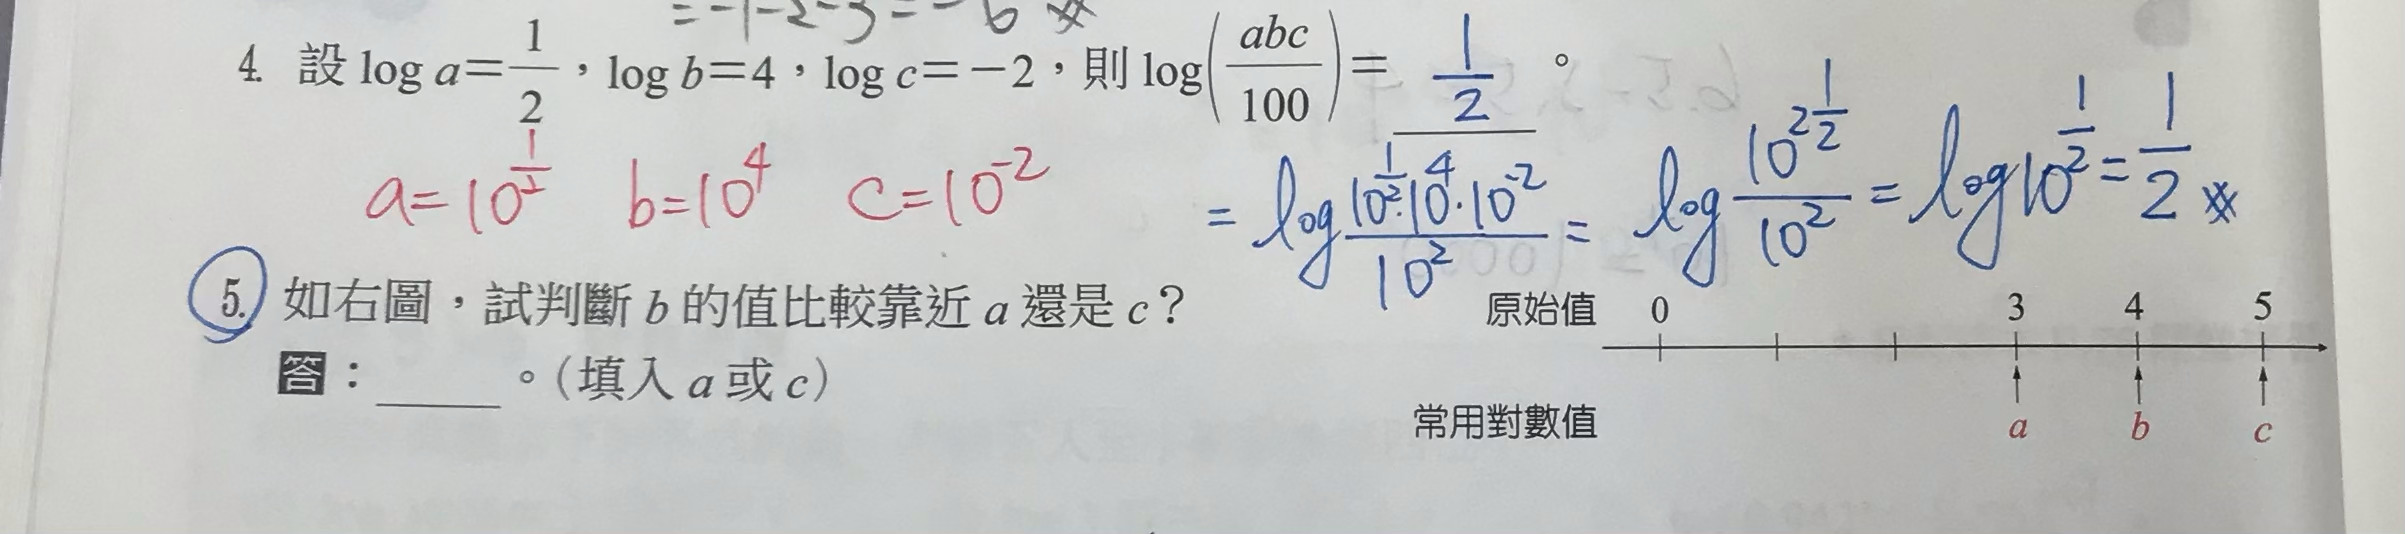 =-1-2-3=-6 ※
4. 設 log a=1/2,log b=4,log c=-2,則 log(abc/100)= 1/2 。
a=10^(1/2) b=10^4 c=10^-2
= log (10^(1/2)·10^4·10^-2)/10^2 = log 10^(2 1/2)/10^2 = log10^(1/2) = 1/2 ※
5. 如右圖,試判斷 b 的值比較靠近 a 還是 c?
答:____。(填入 a 或 c)
原始值 0 3 4 5
常用對數值 a b c